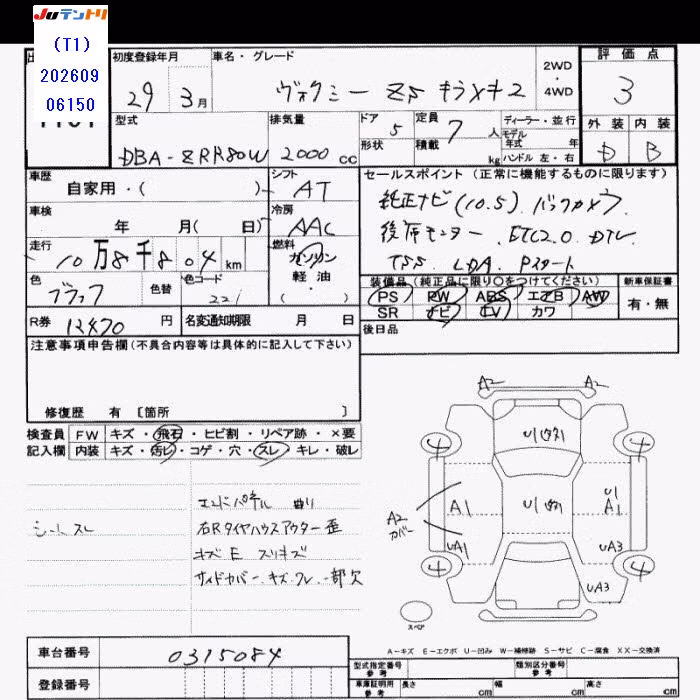 Juテントリ
(T1)
202609
06150
初度登録年月
車名・グレード
2WD
・
4WD
評価点
29 3月
ヴォクシー ZS キラメキ2
3
型式
排気量
ドア
定員
ディーラー・並行
外装 内装
DBA-ZRR80W
2000 cc
5
7人
モデル
年式 年
形状
積載
kg
ハンドル 左・右
D B
車歴
シフト
セールスポイント(正常に機能するものに限ります)
自家用・( )
AT
純正ナビ(10.5) バックカメラ
車検
冷房
年 月( 日)
AAC
後席モニター. ETC2.0. DTV
走行
燃料
10万8千804km
ガソリン
軽油・
( )
TSS LDA. Pスタート
色
色替
色コード
装備品(純正品に限り○をつけてください)
新車保証書
ブラック
221
PS PW ABS エアB AW
有・無
SR ナビ TV カワ
R券 12470円
名変通知期限 月 日
後日品
注意事項申告欄(不具合内容等は具体的に記入して下さい)
修復歴 有 [箇所 ]
検査員 FW キズ・飛石・ヒビ割・リペア跡・×要
記入欄 内装 キズ・汚れ・コゲ・穴・スレ・キレ・破レ
エンドパネル 曲り
シートスレ
右Rタイヤハウスアウター歪
キズE スリキズ
サイドカバー キズ.ワレ.一部欠
A2 A2
4 4
A2
カバー
A1
U1
A1
UA1
UA3
4 4
UA3
スペア
A-キズ E-エクボ U-凹み W-補修跡 S-サビ C-腐食 XX-交換済
車台番号 0315084
型式指定番号
参考
類別区分番号
参考
登録番号
車庫証明用
参考
長さ cm
幅 cm
高さ cm